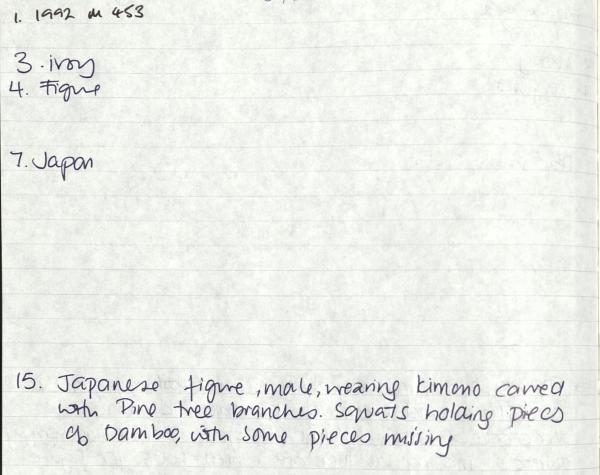 1. 1992 M 453
3. ivory
4. Figure
7. Japan
15. Japanese figure, male, wearing kimono carved
with Pine tree branches. Squats holding pieces
of bamboo, with some pieces missing